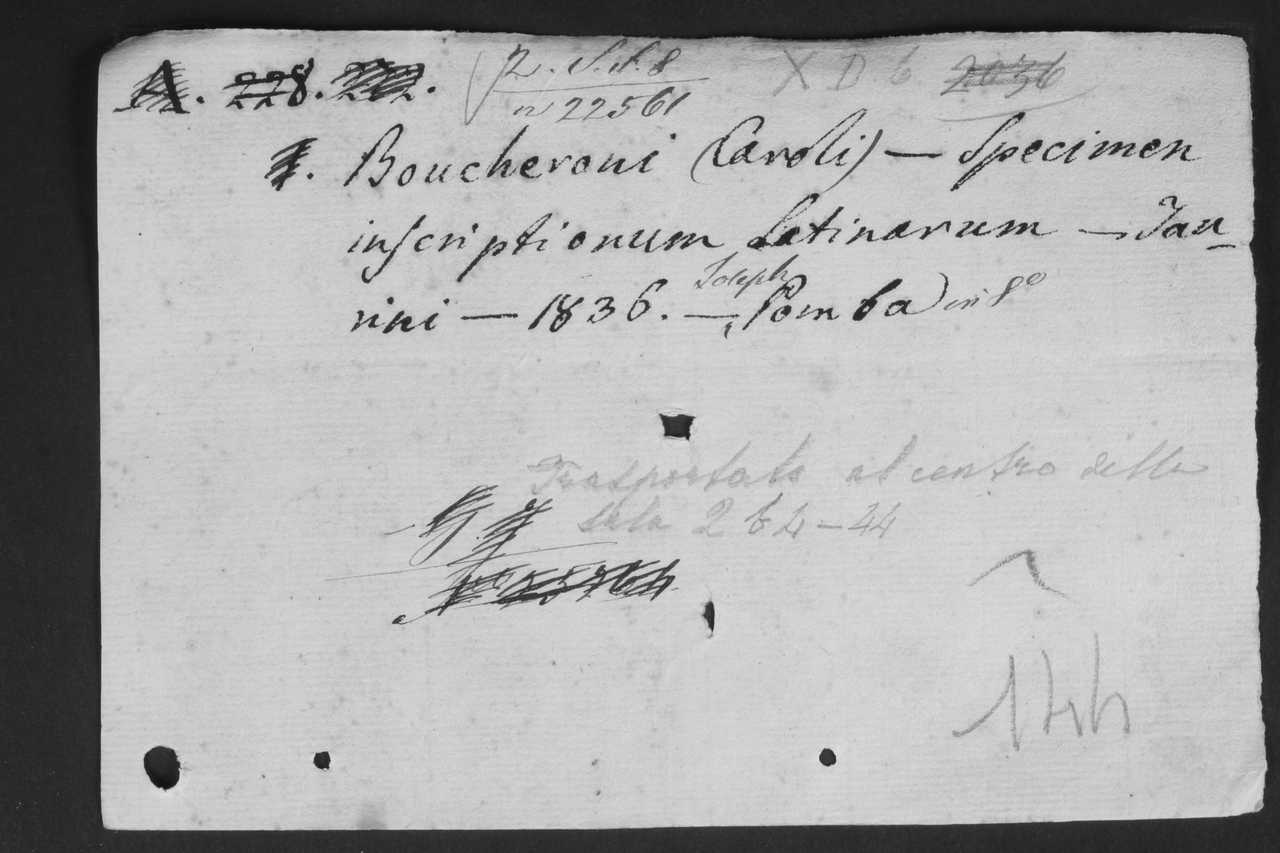 A. 228. 222. 2. S. d. 8 X D 6 2036
n 22561
Boucheroni (Caroli) — Specimen
inscriptionum Latinarum — Tau-
rini — 1836. — Joseph Pomba in 8º
Trasportato al centro della
sala 2 b 4 - 44